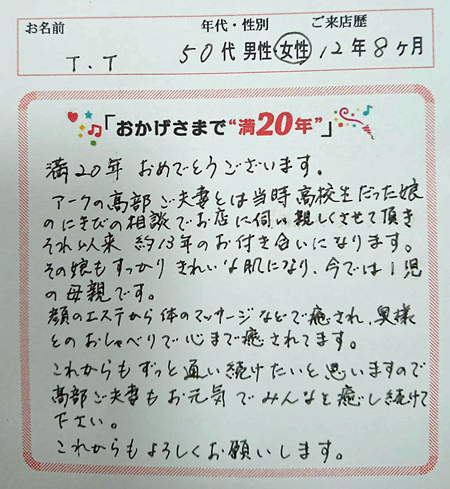 お名前 年代・性別 ご来店歴
T.T 50代 男性・女性 12年8ヶ月
「おかげさまで"満20年"」
満20年 おめでとうございます。
アークの髙部ご夫妻とは当時高校生だった娘
のにきびの相談でお店に伺い親しくさせて頂き
それ以来 約13年のお付き合いになります。
その娘もすっかりきれいな肌になり、今では1児
の母親です。
顔のエステから体のマッサージなどで癒され、奥様
とのおしゃべりで心まで癒されてます。
これからもずっと通い続けたいと思いますので
髙部ご夫妻もお元気でみんなを癒し続けて
下さい。
これからもよろしくお願いします。